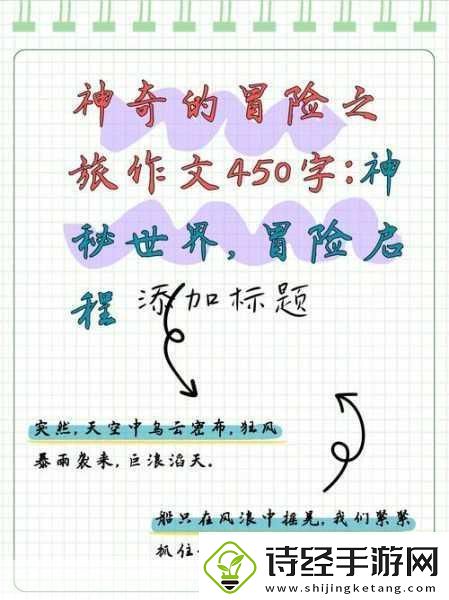 神奇的冒险之
旅作文450字:神
秘世界,冒险启
程
添加标题
突然,天空中乌云密布,狂风
暴雨袭来,巨浪滔天。
船只在风浪中摇晃,我们紧紧
抓住
诗经手游网
www.shijingketang.com